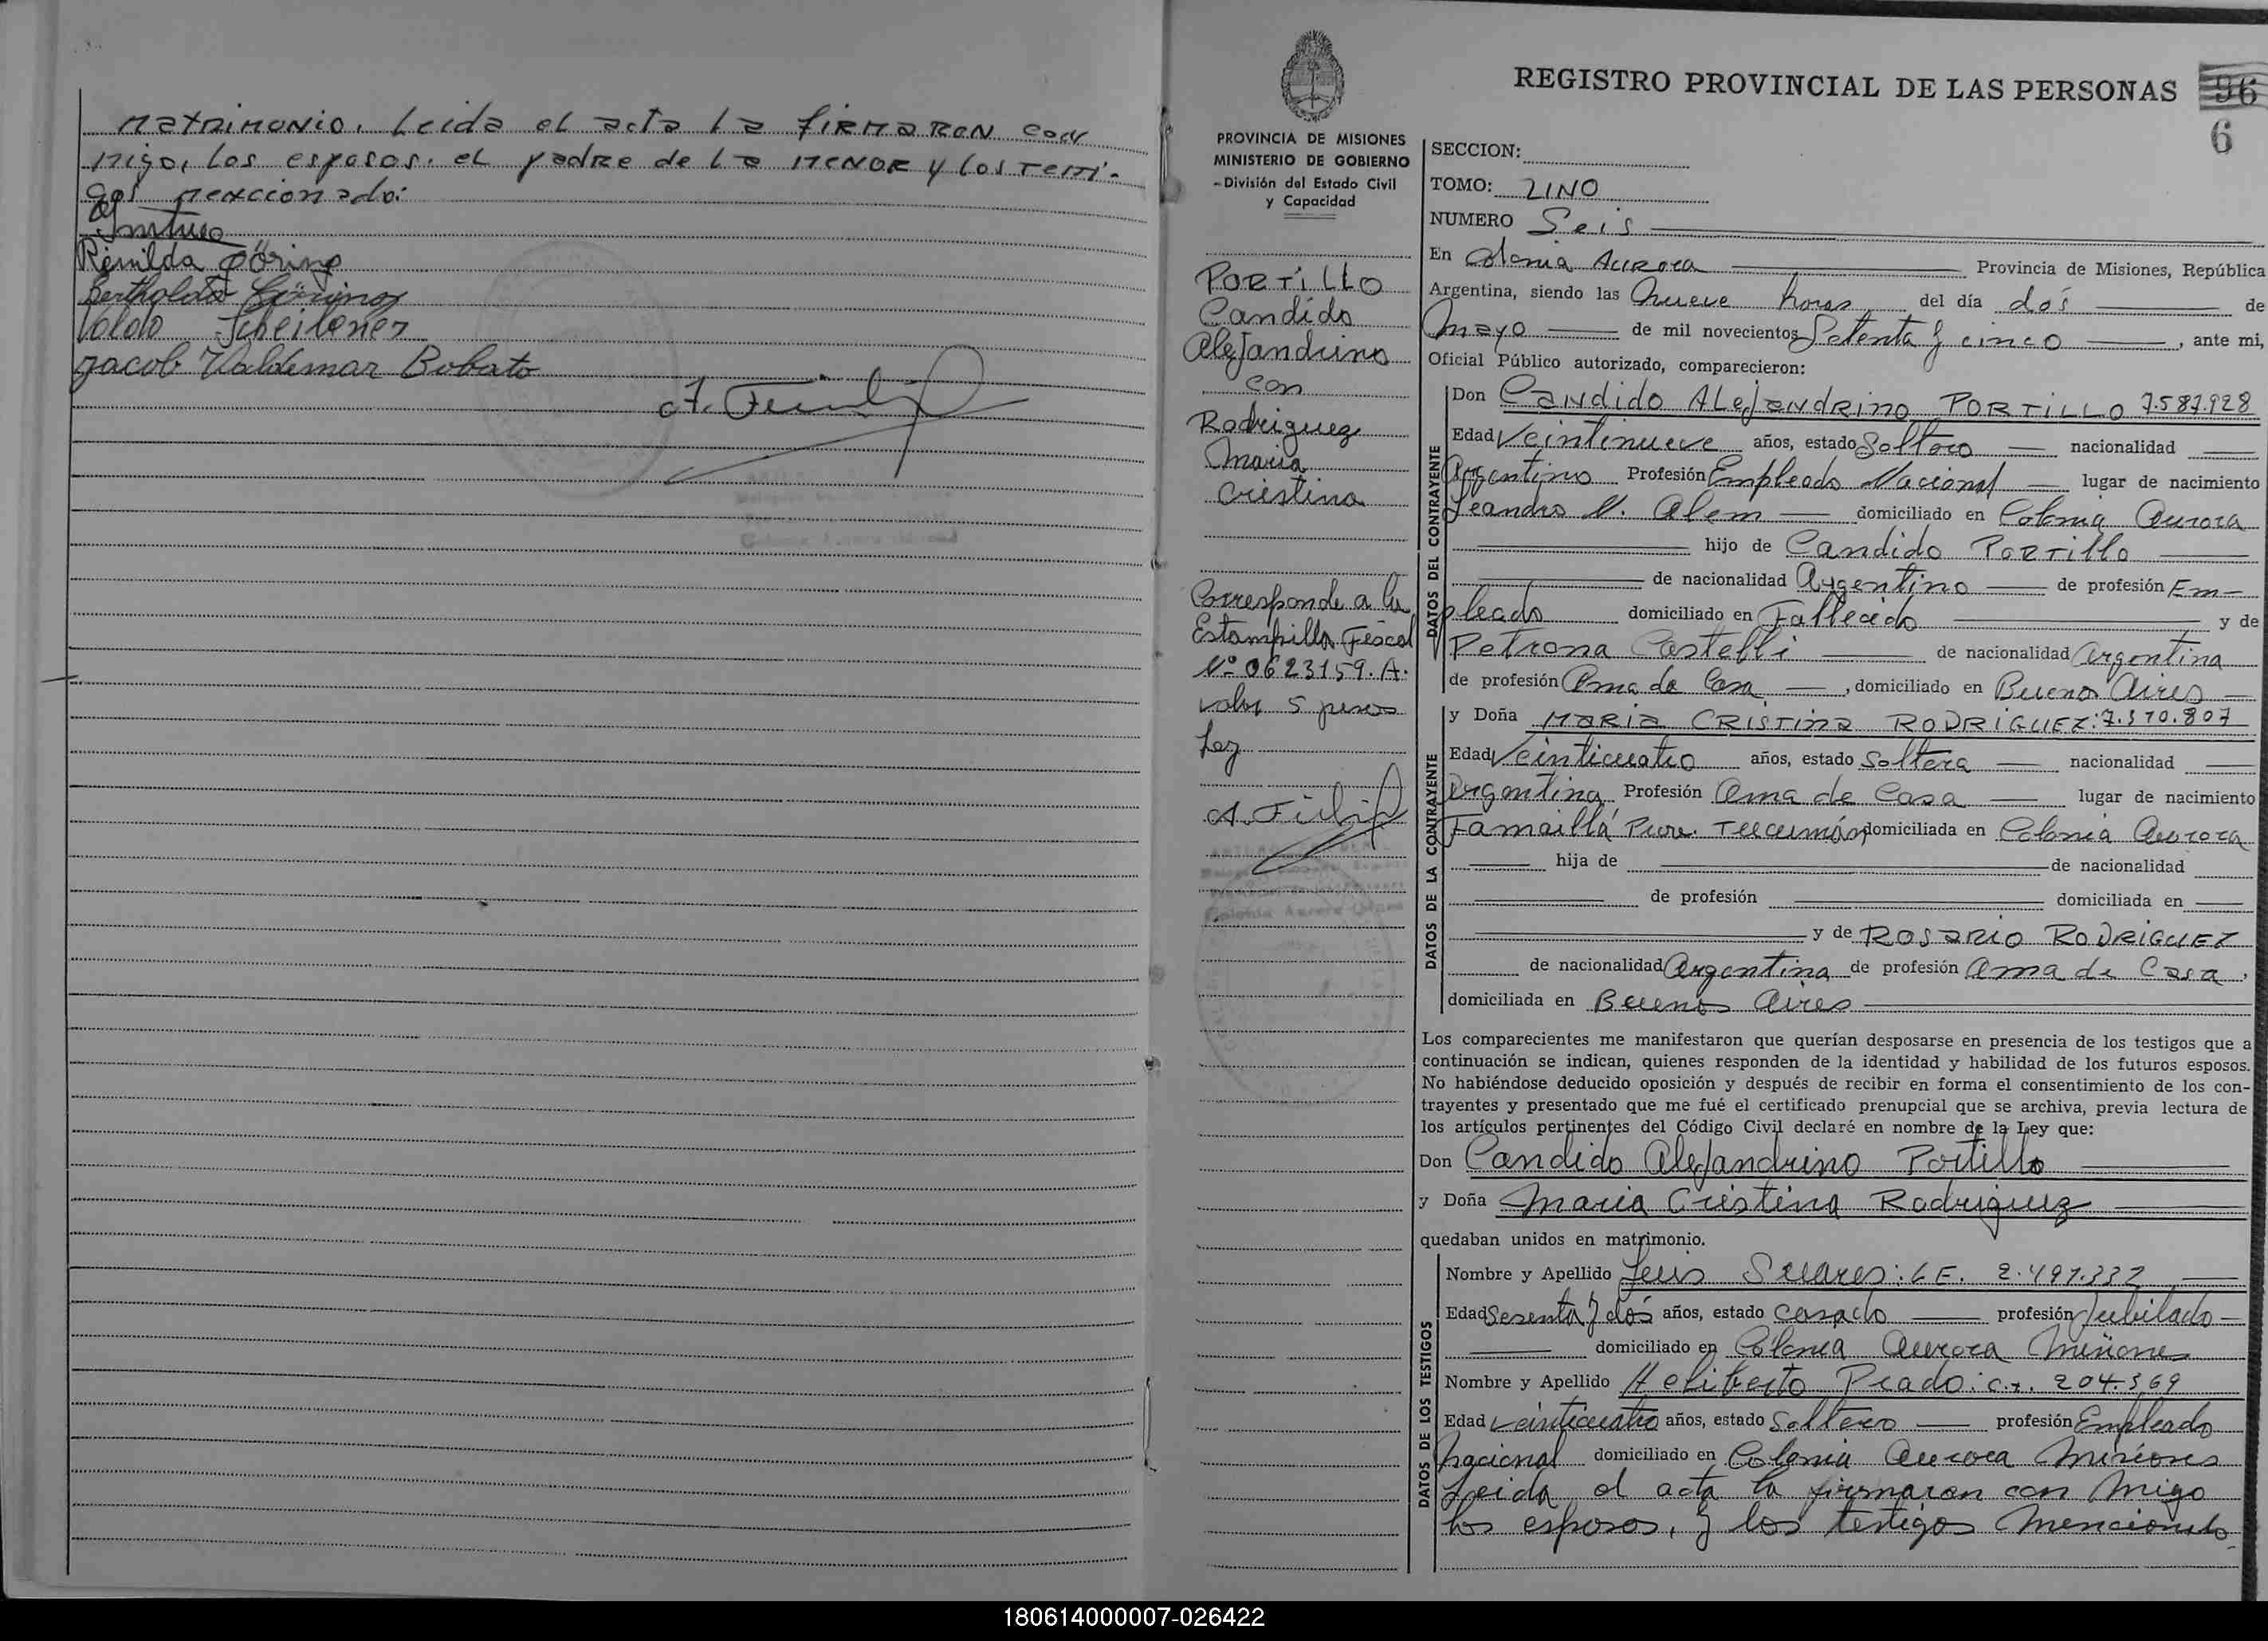 matrimonio. Leida el acta la firmaron con
migo, los esposos. el padre de la menor y los testi-
gos mencionado:
Remilda Göring
Bertholdo Göring
Valdo Scheibner
Jacob Valdemar Bobato
REGISTRO PROVINCIAL DE LAS PERSONAS
96
6
PROVINCIA DE MISIONES
MINISTERIO DE GOBIERNO
-División del Estado Civil
y Capacidad
PORTILLO
Candido
Alejandrino
con
Rodriguez
Maria
Cristina
Corresponde a la
Estampilla Fiscal
Nº 0623159.A.
valor 5 pesos
Ley
SECCION:
TOMO: UNO
NUMERO Seis
En Colonia Aurora Provincia de Misiones, República
Argentina, siendo las Nueve horas del día dos de
Mayo de mil novecientos Setenta y cinco, ante mi,
Oficial Público autorizado, comparecieron:
DATOS DEL CONTRAYENTE
Don Candido Alejandrino PORTILLO 7.587.928
Edad Veintinueve años, estado Soltero nacionalidad
Argentino Profesión Empleado Nacional lugar de nacimiento
Leandro N. Alem domiciliado en Colonia Aurora
hijo de Candido Portillo
de nacionalidad Argentino de profesión Em-
pleado domiciliado en Fallecido y de
Petrona Castelli de nacionalidad Argentina
de profesión Ama de Casa, domiciliado en Buenos Aires
DATOS DE LA CONTRAYENTE
y Doña MARIA CRISTINA RODRIGUEZ: 7.370.807
Edad Veinticuatro años, estado Soltera nacionalidad
Argentina Profesión Ama de Casa lugar de nacimiento
Famaillá Pcia. Tucumán domiciliada en Colonia Aurora
hija de de nacionalidad
de profesión domiciliada en
y de ROSARIO RODRIGUEZ
de nacionalidad Argentina de profesión Ama de Casa,
domiciliada en Buenos Aires
Los comparecientes me manifestaron que querían desposarse en presencia de los testigos que a
continuación se indican, quienes responden de la identidad y habilidad de los futuros esposos.
No habiéndose deducido oposición y después de recibir en forma el consentimiento de los con-
trayentes y presentado que me fué el certificado prenupcial que se archiva, previa lectura de
los artículos pertinentes del Código Civil declaré en nombre de la Ley que:
Don Candido Alejandrino Portillo
y Doña Maria Cristina Rodriguez
quedaban unidos en matrimonio.
DATOS DE LOS TESTIGOS
Nombre y Apellido Luis Suares: L E. 2.497.332
Edad Sesenta y dos años, estado casado profesión Jubilado
domiciliado en Colonia Aurora Misiones
Nombre y Apellido Heliberto Prado: C.I. 204.369
Edad Veinticuatro años, estado Soltero profesión Empleado
Nacional domiciliado en Colonia Aurora Misiones
Leida el acta la firmaron con migo
los esposos, y los testigos Mencionado
180614000007-026422